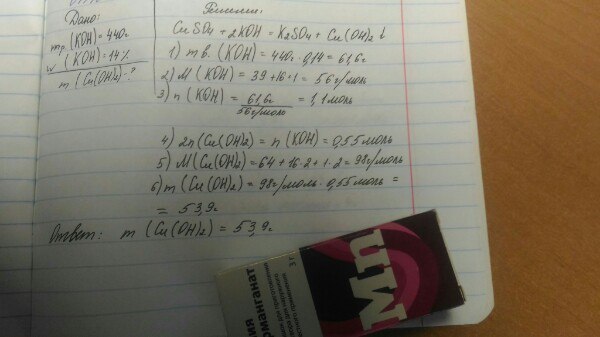 Дано:
mр.(KOH)=440г
w (KOH)=14%
m (Cu(OH)2)-?
Решение:
CuSO4 + 2KOH = K2SO4 + Cu(OH)2 ↓
1) m в. (KOH) = 440г · 0,14 = 61,6г
2) M (KOH) = 39+16+1 = 56г/моль
3) n (KOH) = 61,6г / 56г/моль = 1,1 моль
4) 2n(Cu(OH)2) = n (KOH) = 0,55моль
5) M(Cu(OH)2) = 64+16·2+1·2 = 98г/моль
6) m (Cu(OH)2) = 98г/моль · 0,55моль =
= 53,9г
Ответ: m (Cu(OH)2) = 53,9г
Mn
3 г
рманганат